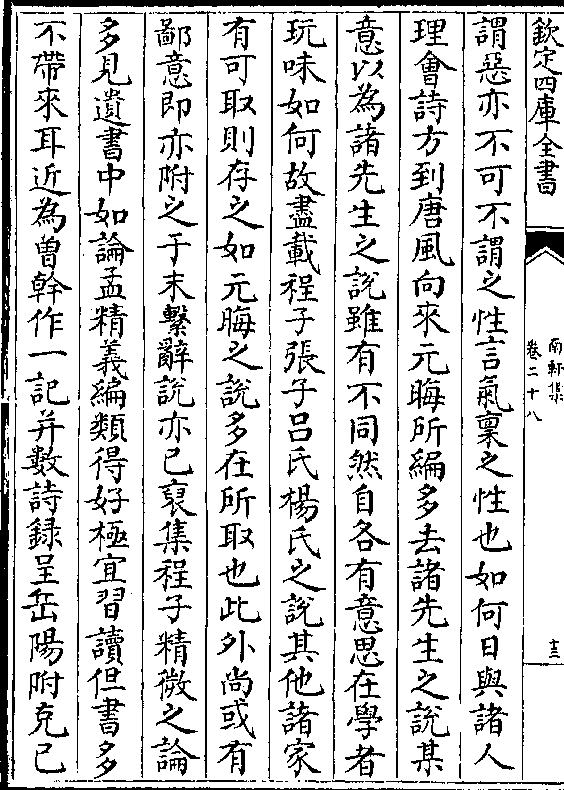 欽定四庫全書
南軒集
卷二十八
十三
謂惡亦不可不謂之性言氣稟之性也如何日與諸人
理會詩方到唐風向來元晦所編多去諸先生之說某
意以為諸先生之說雖有不同然自各有意思在學者
玩味如何故盡載程子張子呂氏楊氏之說其他諸家
有可取則存之如元晦之說多在所取也此外尚或有
鄙意即亦附之于末繫辭說亦已裒集程子精微之論
多見遺書中如論孟精義編類得好極宜習讀但書多
不帶來耳近為曽幹作一記并數詩録呈岳陽附克已